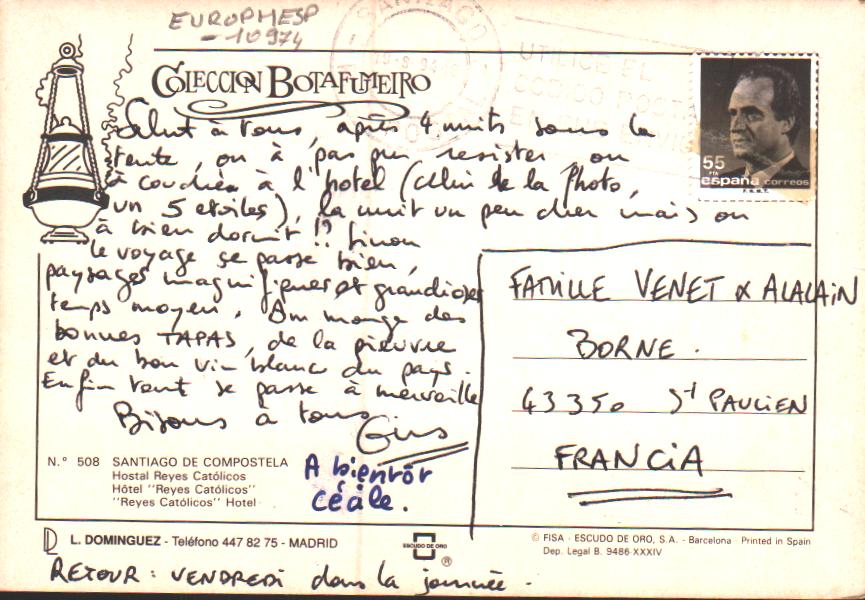 EUROPHESP
- 10974
SANTIAGO
UTILICE EL
CODIGO POSTAL
COLECCION BOTAFUMEIRO
Salut à tous, après 4 nuits sous la
tente, on à pas pu resister on
à couchée à l'hotel (celui de la Photo,
un 5 etoiles), la nuit un peu cher mais on
à bien dormit !! Sinon
le voyage se passe bien,
paysages magnifiques et grandioses
temps moyen, On mange des
bonnes TAPAS, de la pieuvre
et du bon vin blanc du pays.
Enfin tout se passe à merveille
Bisous à tous
A bientôt
Céale.
55
PTA
españa correos
F.N.M.T.
FAMILLE VENET & ALALAIN
BORNE.
43350 St PAULIEN
FRANCIA
N.° 508 SANTIAGO DE COMPOSTELA
Hostal Reyes Católicos
Hôtel "Reyes Católicos"
"Reyes Católicos" Hotel
L. DOMINGUEZ - Teléfono 447 82 75 - MADRID
ESCUDO DE ORO
®
© FISA - ESCUDO DE ORO, S.A. - Barcelona Printed in Spain
Dep. Legal B. 9486-XXXIV
RETOUR : VENDREDI dans la journée.